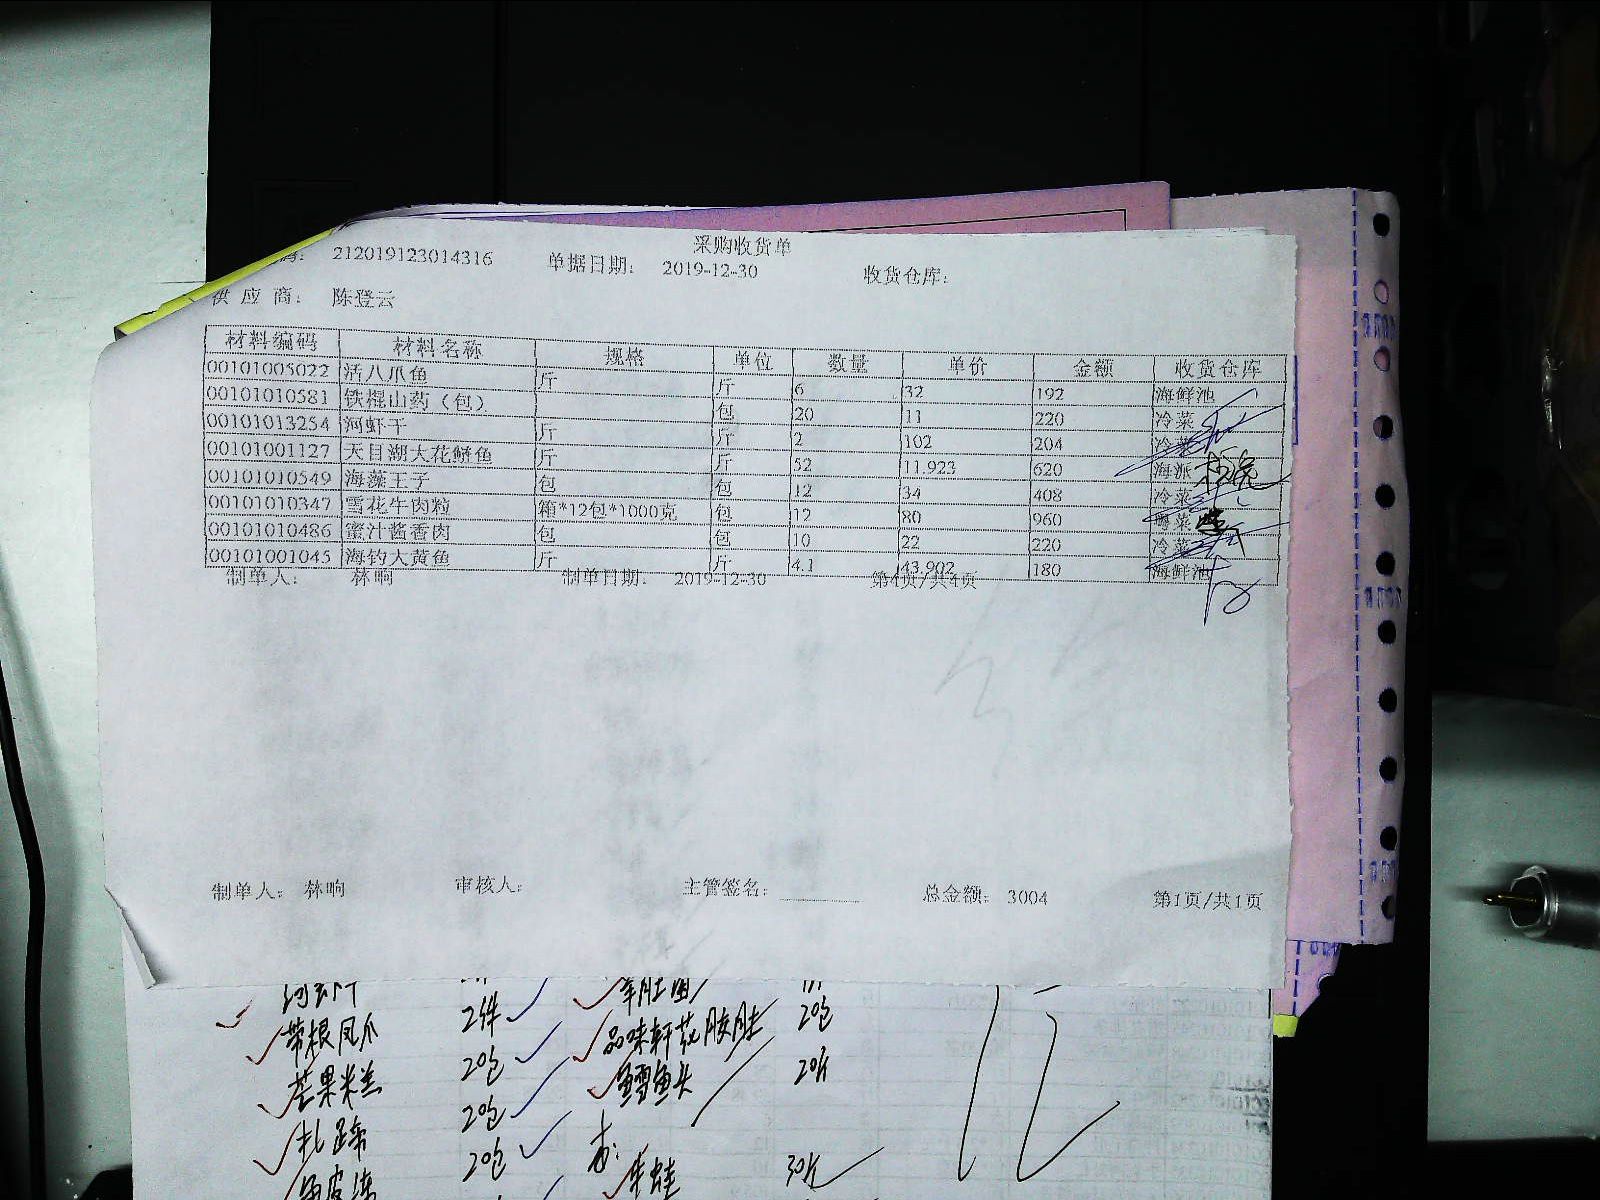 采购收货单
212019123014316 单据日期: 2019-12-30 收货仓库:
供应商: 陈登云
材料编码 材料名称 规格 单位 数量 单价 金额 收货仓库
00101005022 活八爪鱼 斤 斤 6 32 192 海鲜池
00101010581 铁棍山药（包） 包 20 11 220 冷菜
00101013254 河虾干 斤 斤 2 102 204 冷菜
00101001127 天目湖大花鲢鱼 斤 斤 52 11.923 620 海派
00101010549 海藻王子 包 包 12 34 408 冷菜
00101010347 雪花牛肉粒 箱*12包*1000克 包 12 80 960 粤菜
00101010486 蜜汁酱香肉 包 包 10 22 220 冷菜
00101001045 海钓大黄鱼 斤 斤 4.1 43.902 180 海鲜池
制单人: 林响 制单日期: 2019-12-30 第1页/共1页
制单人: 林响 审核人: 主管签名: 总金额: 3004 第1页/共1页
带根凤爪 2件 20包
20包 品味轩花胶肚 20斤
芒果米兰 20包 鳕鱼头
扎蹄 20包
牛蛙 30斤